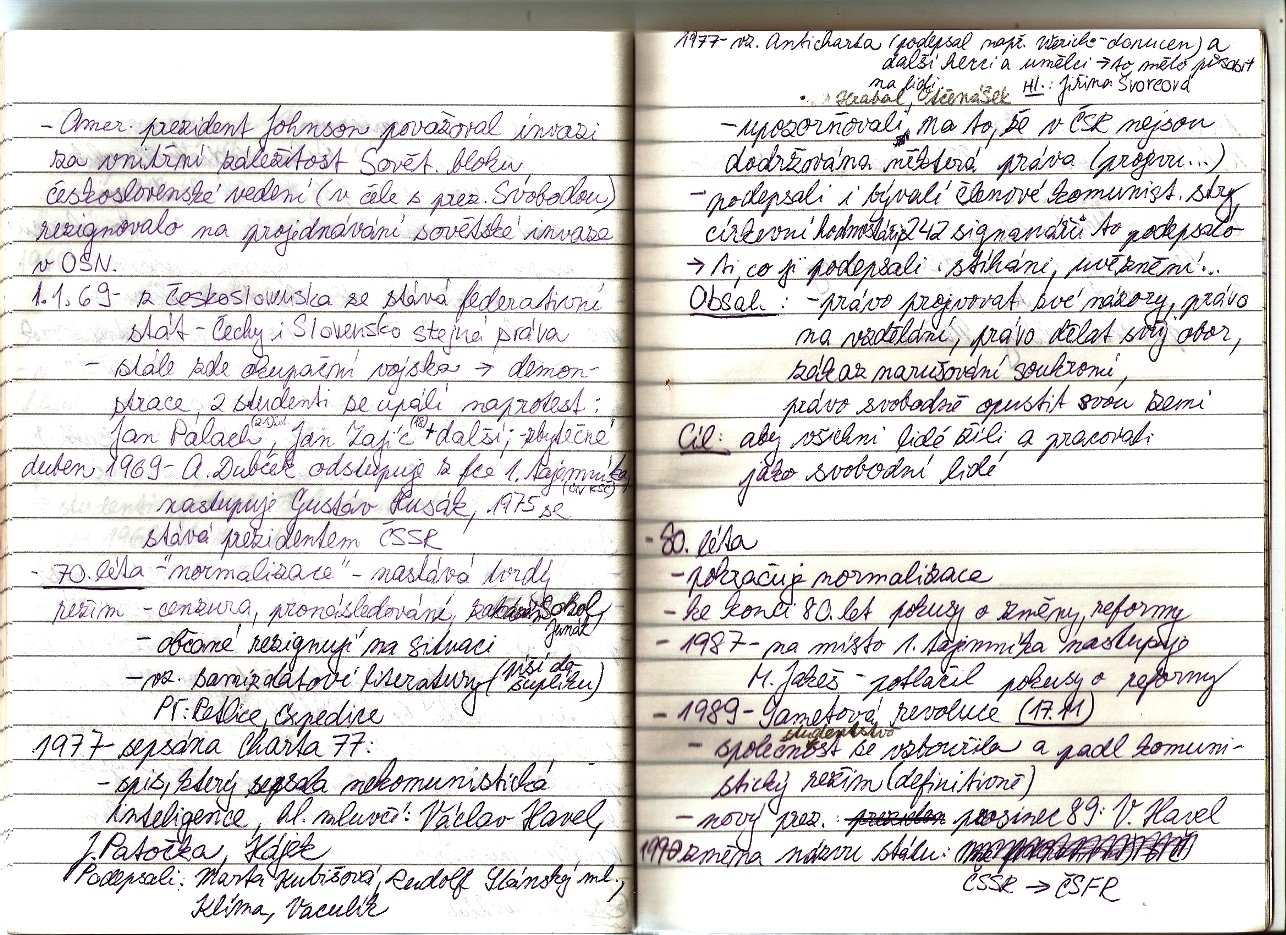 - Amer. prezident Johnson považoval invazi
za vnitřní záležitost Sovět. bloku
československé vedení (v čele s prez. Svobodou)
rezignovalo na projednávání sovětské invaze
v OSN.
1.1.69 - z Československa se stává federativní
stát - Čechy i Slovensko stejná práva
- stále zde okupační vojska → demon-
strace, 2 studenti se upálí naprotest:
Jan Palach (21) let, Jan Zajíc (18) + další; - zbytečné
duben 1969 - A. Dubček odstupuje z fce 1. tajemníka
(ÚV KSČ)
nastupuje Gustáv Husák, 1975 se
stává prezidentem ČSSR
- 70. léta - "normalizace" - nastává tvrdý
režim - cenzura, pronásledování, Sokol,
Junák
- občané rezignují na situaci
- vz. samizdatové literatury (píší do
šuplíku)
Př. Petlice, Expedice
1977 - sepsána Charta 77:
- spis, který sepsala nekomunistická
inteligence, hl. mluvčí: Václav Havel,
J. Patočka, Hájek
Podepsali: Marta Kubišová, Rudolf Slánský ml.,
Klíma, Vaculík
1977 - vz. Anticharta (podepsal např. Werich - donucen) a
další herci a umělci → to mělo působit
na lidi
Hrabal, Otčenášek Hl.: Jiřina Švorcová
- upozorňovali na to, že v ČSR nejsou
dodržována některá práva (projevu...)
- podepsali i bývalí členové komunist. stry,
církevní hodnostáři, 242 signanářů to podepsalo
→ ti, co ji podepsali stíháni, uvěznění...
Obsah: - právo projvovat své názory, právo
na vzdělání, právo dělat svůj obor,
zákaz narušování soukromí,
právo svobodně opustit svou zemi
Cíl: aby všichni lidé žili a pracovali
jako svobodní lidé
- 80. léta
- pokračuje normalizace
- ke konci 80. let pokusy o změny, reformy
- 1987 - na místo 1. tajemníka nastupuje
M. Jakeš - potlačil pokusy o reformy
- 1989 - Sametová revoluce (17.11)
studentstvo
- společnost se vzbouřila a padl komuni-
stický režim (definitivně)
- nový prez. prosinec 89: V. Havel
1990 změna názvu státu:
ČSSR → ČSFR